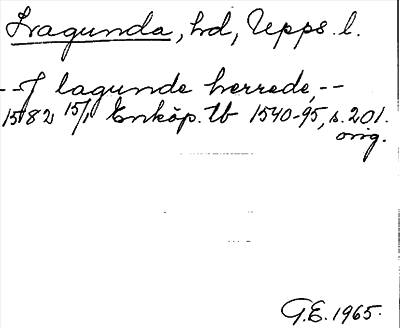 Lagunda, hd, Upps. l.
--J lagunde herrede, --
1582 15/1 Enköp. tb 1540-95, s. 201.
orig.
G.E. 1965.